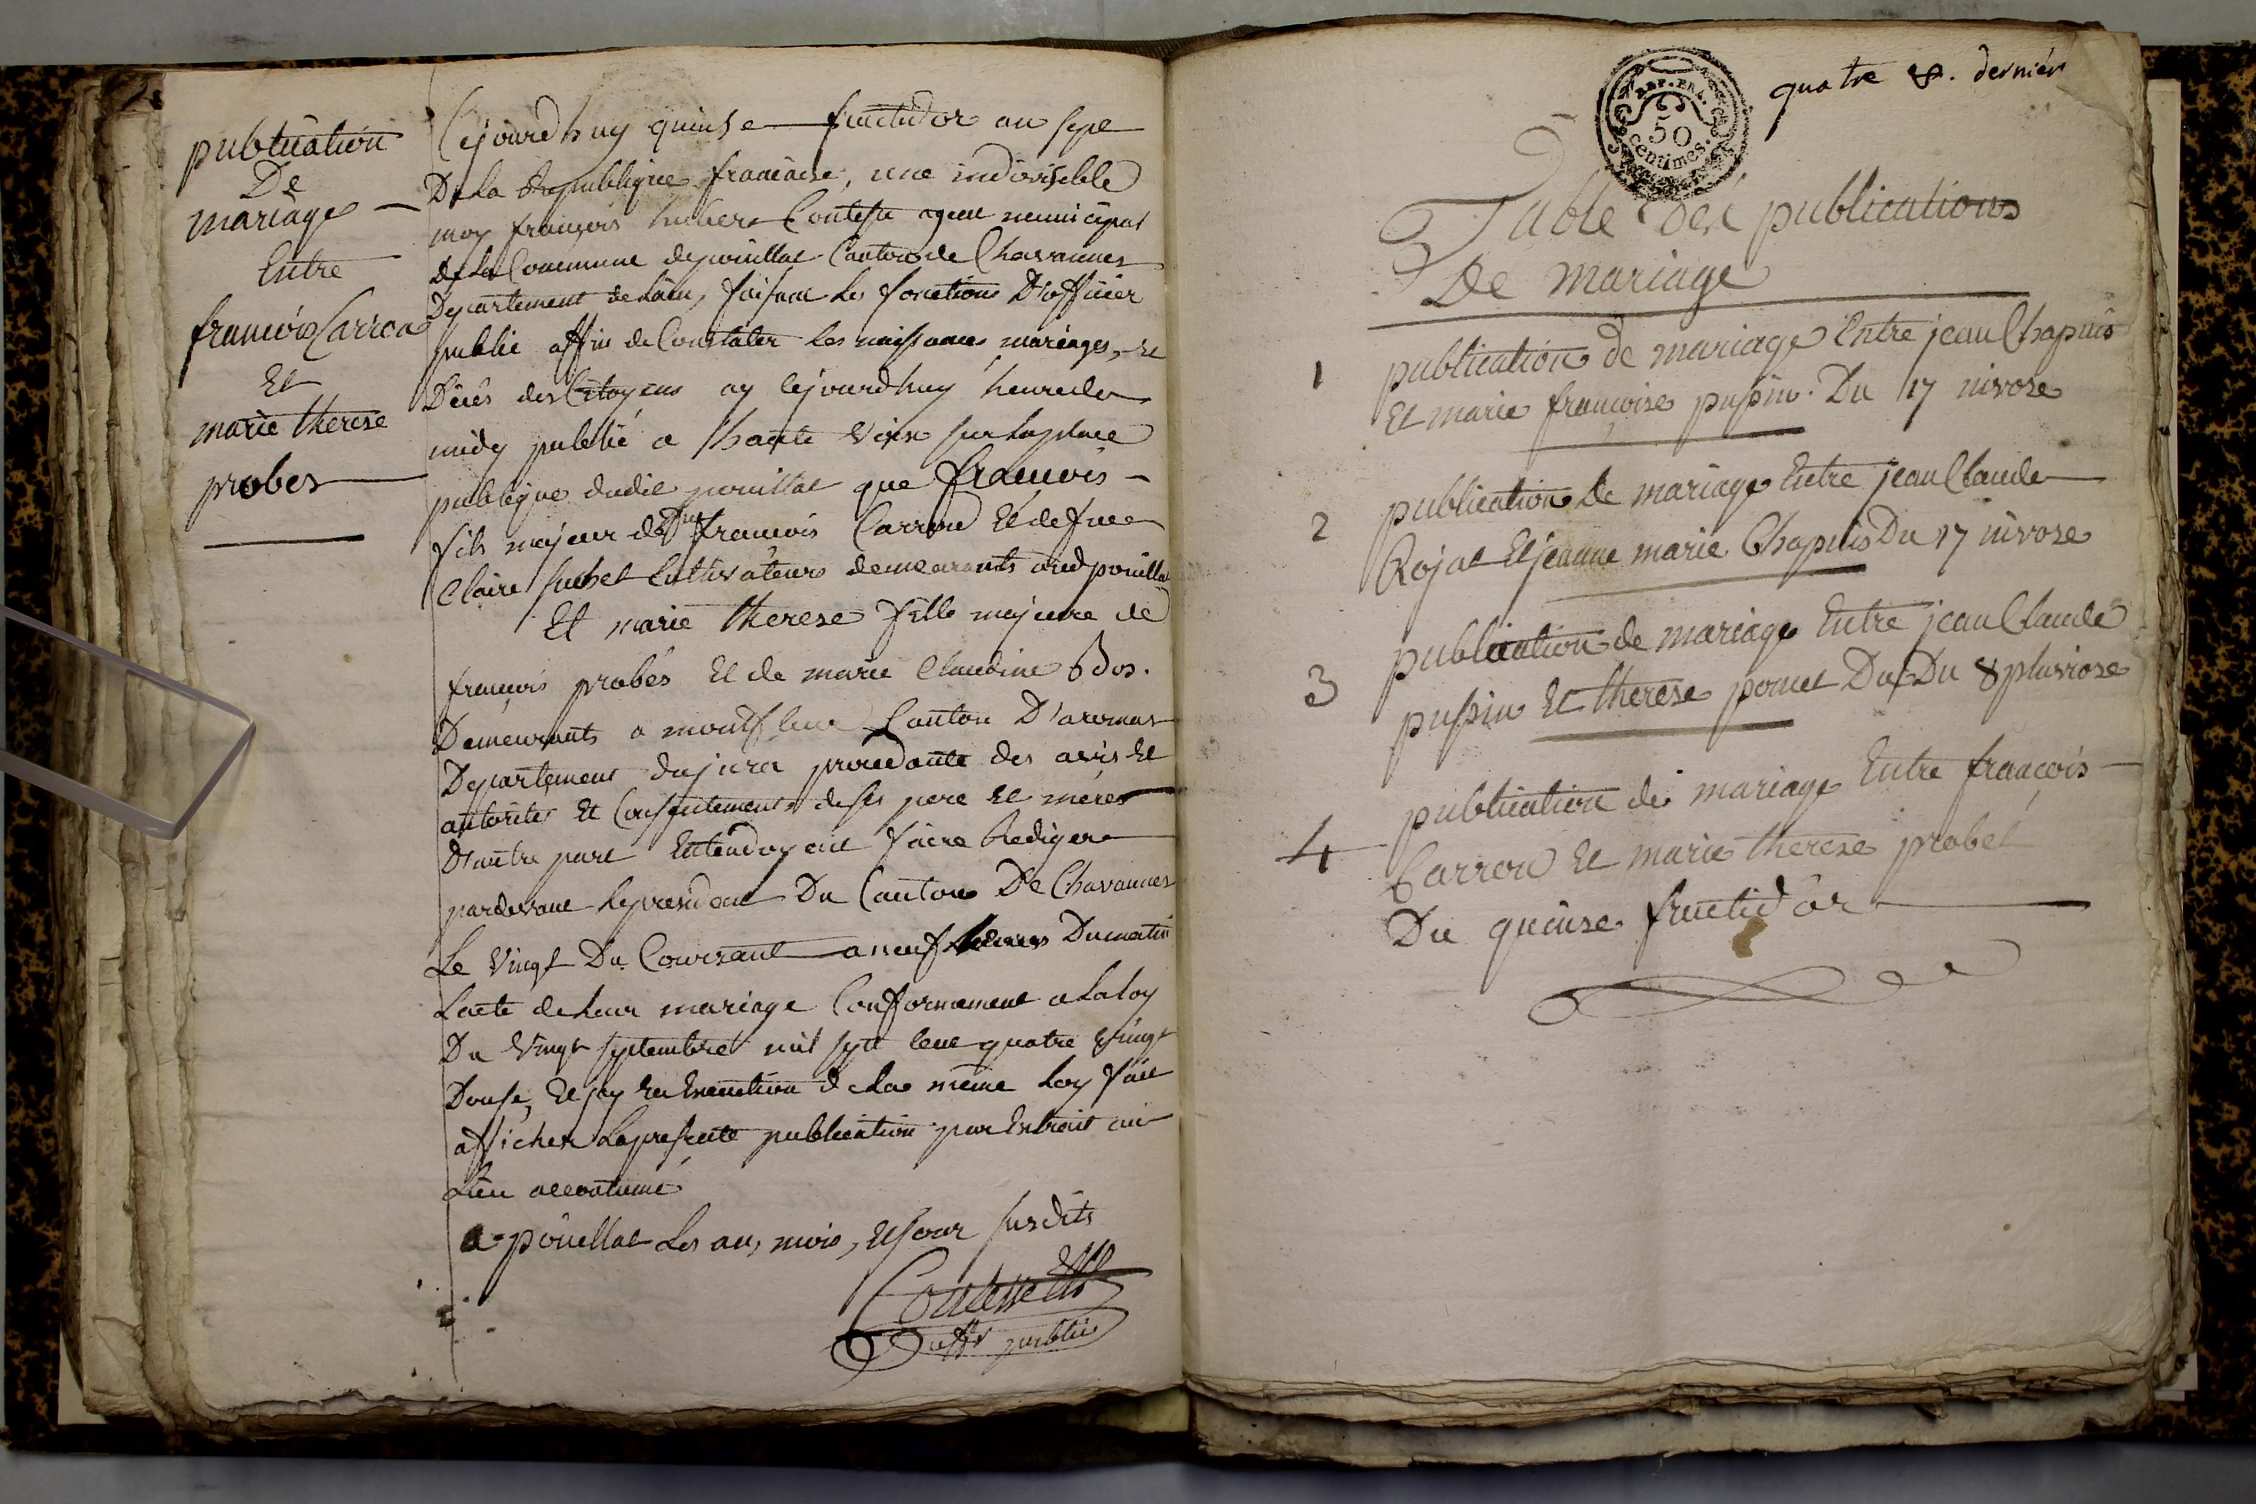 publication
De
mariage
Entre
francois Carron
Et
marie therese
probes
Cejourdhuy quinse fructidor an sept
De La Republique francaise, une indivisible
moy françois hubert Contesse agent municipal
de La Commune de pouillat Canton de Chavannes
Departement de Lain, faisant Les fonctions D'officier
public affin de Constater Les naissances, mariages, et
Décès des Citoyens ay cejourdhuy heure de
midy publié a haute voix sur la place
publique dudit pouillat que francois
fils majeur de feu francois Carron Et de fue
Claire Cultivateurs demeurants aud pouillat
Et marie therese fille majeure de
françois probés Et de marie Claudine Bos.
Demeurants a montfleur Canton D'aromas
Departement du jura procedante des avis Et
autorités Et Consentements de ses pere Et mere
D'autre part Entendoyent faire Rediger
pardevant Le president Du Canton De Chavannes
Le Vingt Du Courrant a neuf heures Du matin
Lacte de Leur mariage Conformement a La loy
Du Vingt septembre mil sept cent quatre vingt
Douse, Et jay En Execution de La même Loy fait
afficher La presente publication par Extrait au
Lieu accoutumé
a pouillat Les an, mois, Et jour susdits
Contesse
offr public
REP. FRA.
50
centimes.
quatre &. dernier
Table des publications
De mariage
1 publication de mariage Entre jean Chapuis
Et marie francoise pupin. Du 17 nivose
2 publication de mariage Entre jean Claude
Rojat Et jeanne marie Chapuis Du 17 nivose
3 publication de mariage Entre jean Claude
pupin Et therese pomet Du Du 8 pluviose
4 publication de mariage Entre françois
Carron Et marie therese probet
Du quinse fructidor